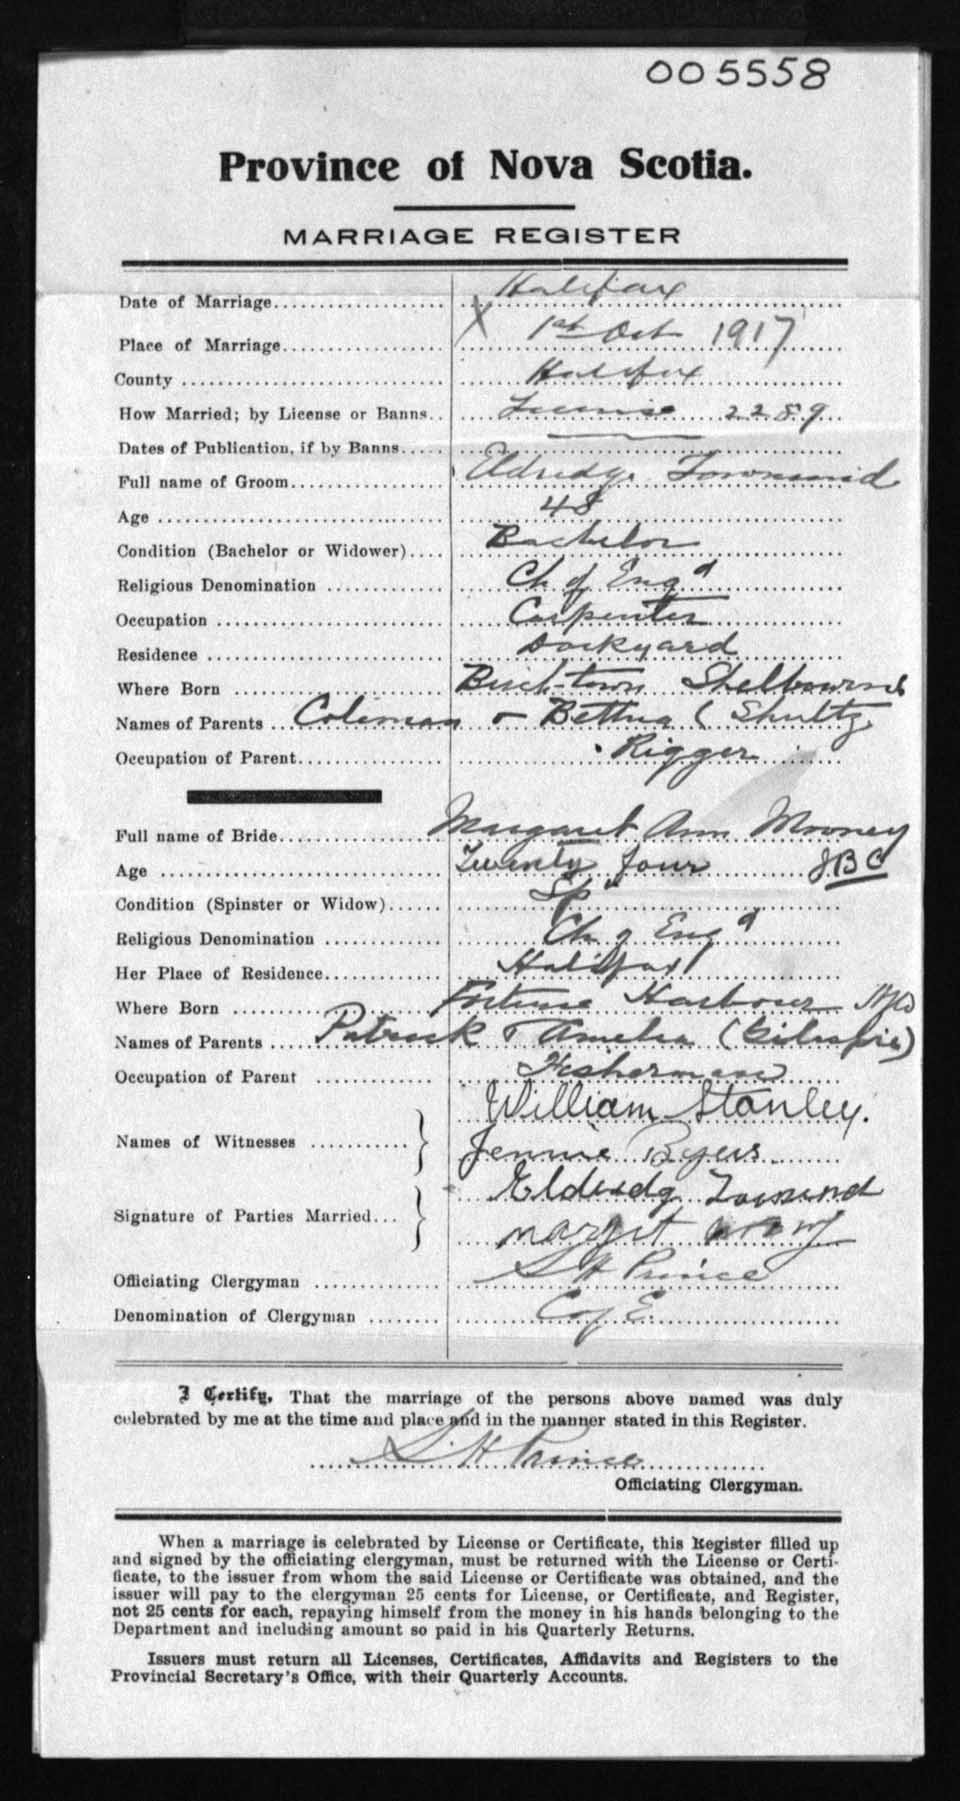 005558
Province of Nova Scotia.
MARRIAGE REGISTER
Date of Marriage Halifax
Place of Marriage X 1st Oct 1917
County Halifax
How Married; by License or Banns License 2289
Dates of Publication, if by Banns
Full name of Groom Eldredge Townsend
Age 48
Condition (Bachelor or Widower) Bachelor
Religious Denomination Ch of Engd
Occupation Carpenter
Residence Dockyard
Where Born Birchtown Shelbourne
Names of Parents Coleman & (Shultz
Occupation of Parent Rigger
Full name of Bride Margaret Ann Mooney
Age Twenty four JBC
Condition (Spinster or Widow) Sp
Religious Denomination Ch of Engd
Her Place of Residence Halifax
Where Born Fortune Harbour Nfld
Names of Parents Patrick & Amelia (Gillespie)
Occupation of Parent Fisherman
Names of Witnesses William Stanley.
Jennie Byers
Signature of Parties Married Townend
margret
Officiating Clergyman S H Prince
Denomination of Clergyman C of E.
I Certify, That the marriage of the persons above named was duly
celebrated by me at the time and place and in the manner stated in this Register.
S. H Prince
Officiating Clergyman.
When a marriage is celebrated by License or Certificate, this Register filled up
and signed by the officiating clergyman, must be returned with the License or Certi-
ficate, to the issuer from whom the said License or Certificate was obtained, and the
issuer will pay to the clergyman 25 cents for License, or Certificate, and Register,
not 25 cents for each, repaying himself from the money in his hands belonging to the
Department and including amount so paid in his Quarterly Returns.
Issuers must return all Licenses, Certificates, Affidavits and Registers to the
Provincial Secretary's Office, with their Quarterly Accounts.